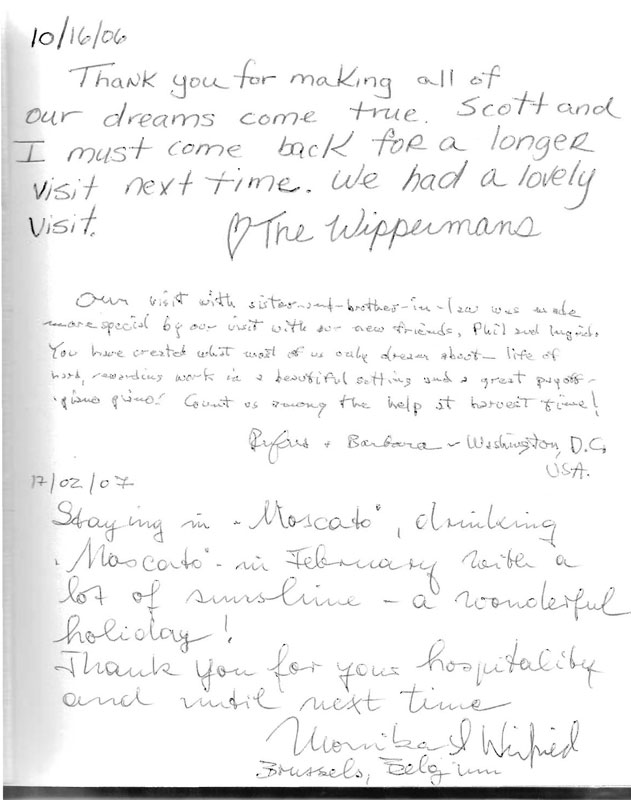 10/16/06
Thank you for making all of
our dreams come true. Scott and
I must come back for a longer
visit next time. We had a lovely
visit. ♡ The Wippermans
Our visit with sister-and-brother-in-law was made
more special by our visit with our new friends, Phil and Ingrid.
You have created what most of us only dream about - life of
hard, rewarding work in a beautiful setting and a great payoff -
"piano piano!" Count us among the help at harvest time!
Rufus + Barbara ~ Washington, D.C.
USA.
17/02/07
Staying in "Moscato", drinking
"Moscato" in February with a
lot of sunshine - a wonderful
holiday!
Thank you for your hospitality
and until next time
Monika & Winfried
Brussels, Belgium